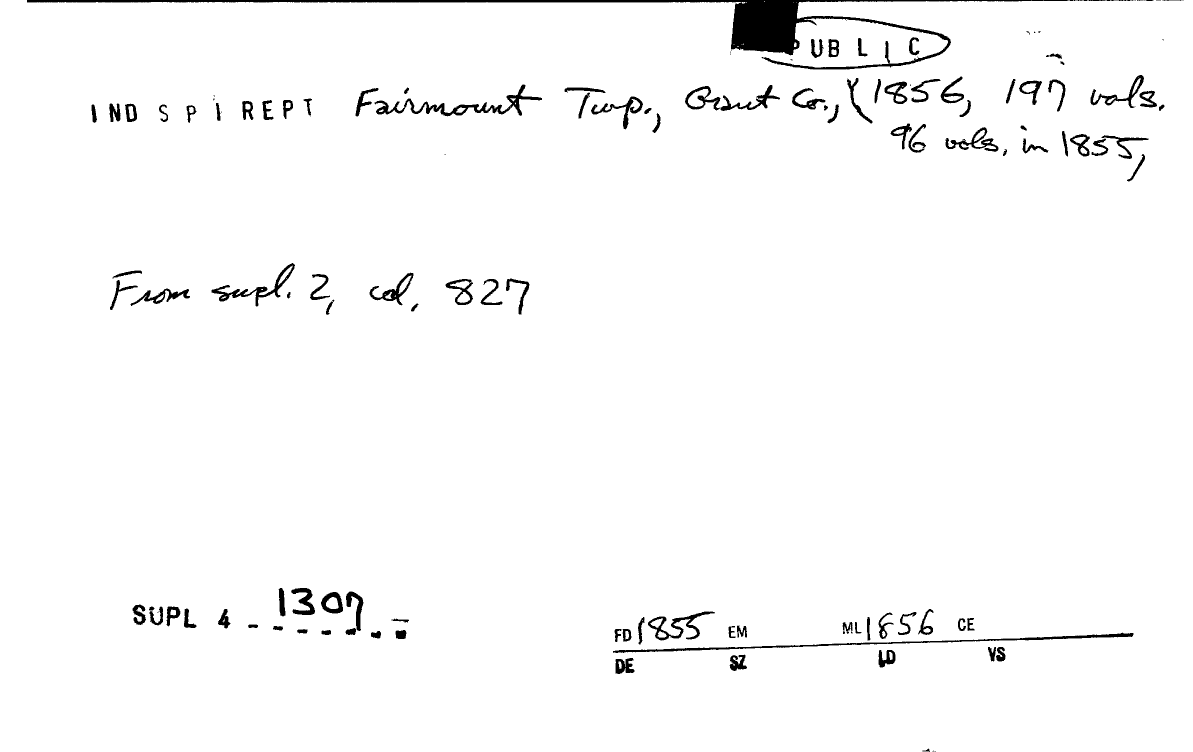 PUBLIC
IND S P I REPT Fairmount Twp., Grant Co., (1856, 197 vols.
96 vols, in 1855,
From supl. 2, col, 827
SUPL 4 - 1307
FD 1855 EM ML 1856 CE
DE SZ LD VS